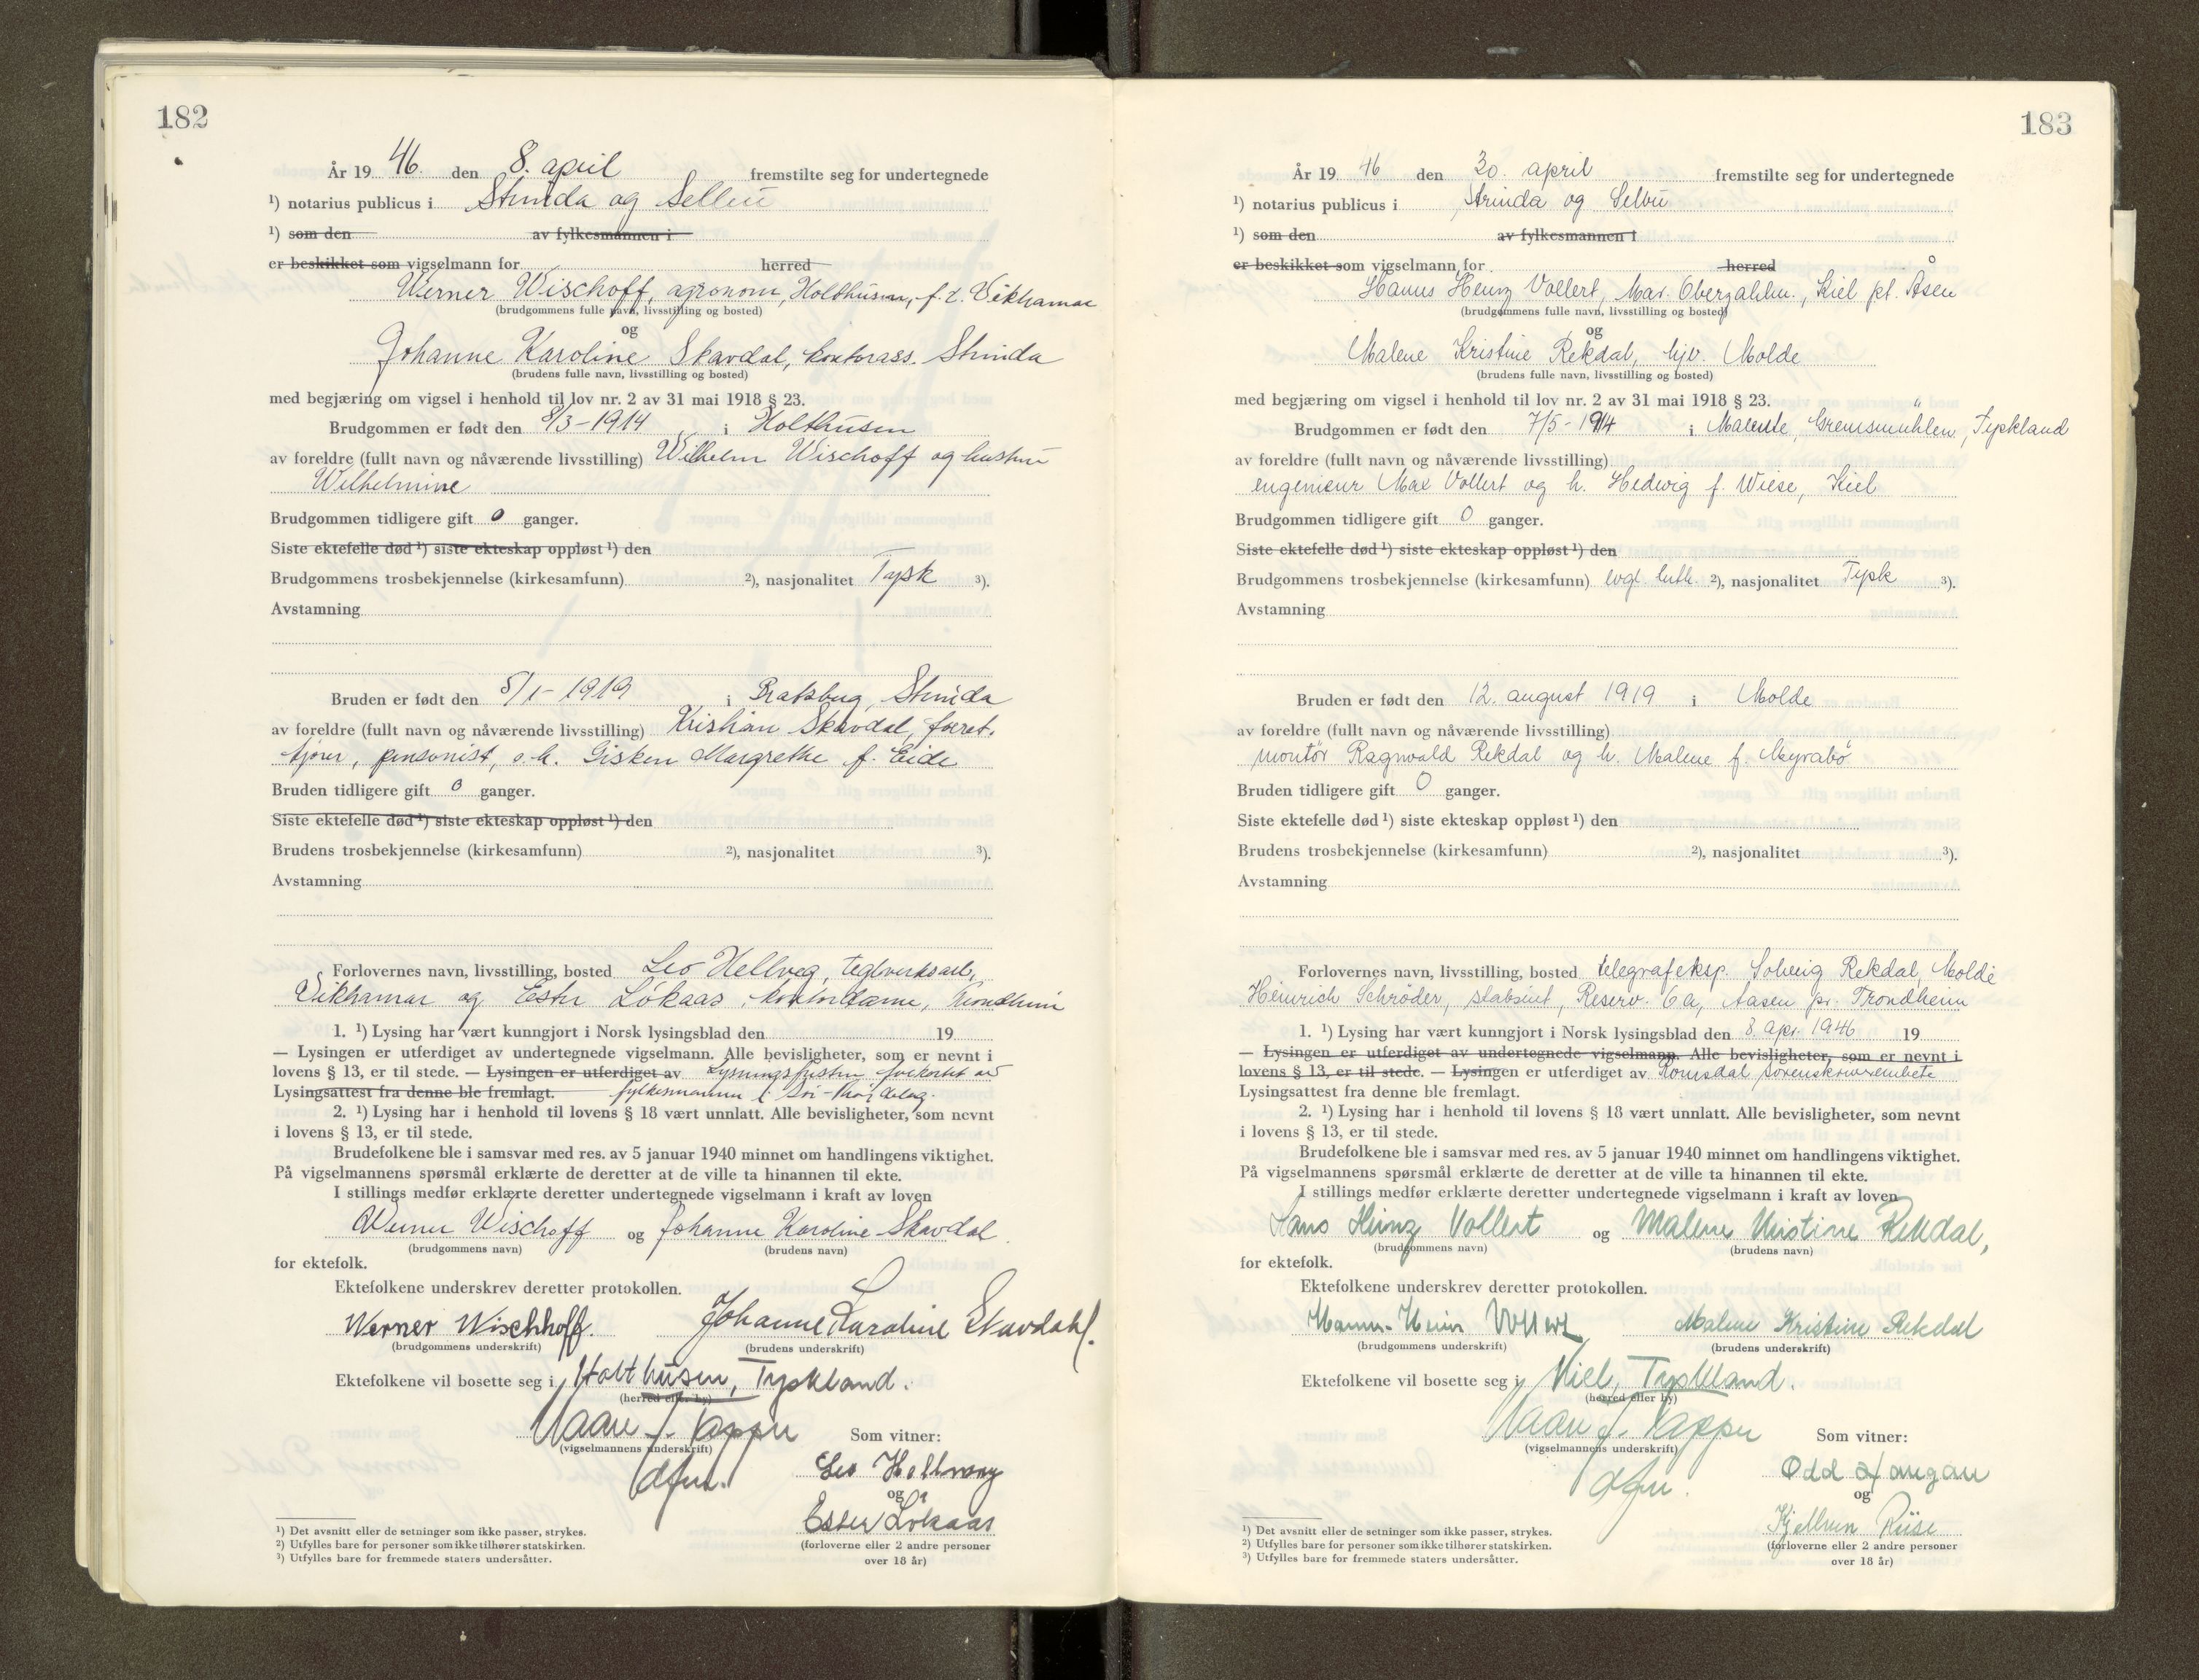 182
År 19 46. den 8. april fremstilte seg for undertegnede
¹) notarius publicus i Strinda og Selbu
¹) som den av fylkesmannen i
er beskikket som vigselmann for herred
Werner Wischoff, agronom, Holthusen, f. t. Vikhamar
(brudgommens fulle navn, livsstilling og bosted)
og
Johanne Karoline Skavdal, kontorass. Strinda
(brudens fulle navn, livsstilling og bosted)
med begjæring om vigsel i henhold til lov nr. 2 av 31 mai 1918 § 23.
Brudgommen er født den 8/3-1914 i Holthusen
av foreldre (fullt navn og nåværende livsstilling) Wilhelm Wischoff og hustru
Wilhelmine
Brudgommen tidligere gift 0 ganger.
Siste ektefelle død ¹) siste ekteskap oppløst ¹) den
Brudgommens trosbekjennelse (kirkesamfunn) ²), nasjonalitet Tysk ³).
Avstamning
Bruden er født den 5/1-1919 i Bratsberg, Strinda
av foreldre (fullt navn og nåværende livsstilling) Kristian Skavdal, forret.
fører, pensonist, o. h. Gisken Margrethe f. Eide
Bruden tidligere gift 0 ganger.
Siste ektefelle død ¹) siste ekteskap oppløst ¹) den
Brudens trosbekjennelse (kirkesamfunn) ²), nasjonalitet ³).
Avstamning
Forlovernes navn, livsstilling, bosted Leo Hellveg, teglverksarb.,
Vikhamar og Ester Lökaas, kontordame, Trondheim
1. ¹) Lysing har vært kunngjort i Norsk lysingsblad den 19
— Lysingen er utferdiget av undertegnede vigselmann. Alle bevisligheter, som er nevnt i
lovens § 13, er til stede. — Lysingen er utferdiget av Lysningsfristen forkortet av
Lysingsattest fra denne ble fremlagt. fylkesmannen i Sör-Tröndelag.
2. ¹) Lysing har i henhold til lovens § 18 vært unnlatt. Alle bevisligheter, som nevnt
i lovens § 13, er til stede.
Brudefolkene ble i samsvar med res. av 5 januar 1940 minnet om handlingens viktighet.
På vigselmannens spørsmål erklærte de deretter at de ville ta hinannen til ekte.
I stillings medfør erklærte deretter undertegnede vigselmann i kraft av loven
Werner Wischoff og Johanne Karoline Skavdal.
(brudgommens navn) (brudens navn)
for ektefolk.
Ektefolkene underskrev deretter protokollen.
Werner Wischhoff. Johanne Karoline Skavdahl.
(brudgommens underskrift) (brudens underskrift)
Ektefolkene vil bosette seg i Holthusen, Tyskland.
(herred eller by)
(vigselmannens underskrift) Som vitner:
dfm. Leo Hellweg
og
Ester Lökaas
(forloverne eller 2 andre personer
over 18 år)
¹) Det avsnitt eller de setninger som ikke passer, strykes.
²) Utfylles bare for personer som ikke tilhører statskirken.
³) Utfylles bare for fremmede staters undersåtter.
183
År 19 46 den 30. april fremstilte seg for undertegnede
¹) notarius publicus i Strinda og Selbu
¹) som den av fylkesmannen i
er beskikket som vigselmann for herred
Hanns Heinz Vollert, Mar. Oberzahlm., Kiel pt. Åsen
(brudgommens fulle navn, livsstilling og bosted)
og
Malene Kristine Rekdal, hjv. Molde
(brudens fulle navn, livsstilling og bosted)
med begjæring om vigsel i henhold til lov nr. 2 av 31 mai 1918 § 23.
Brudgommen er født den 7/5-1914 i Malente, Gremsmühlen, Tyskland
av foreldre (fullt navn og nåværende livsstilling)
engenieur Max Vollert og h. Hedwig f. Wiese, Kiel
Brudgommen tidligere gift 0 ganger.
Siste ektefelle død ¹) siste ekteskap oppløst ¹) den
Brudgommens trosbekjennelse (kirkesamfunn) evgl. luth. ²), nasjonalitet Tysk ³).
Avstamning
Bruden er født den 12. august 1919 i Molde
av foreldre (fullt navn og nåværende livsstilling)
montör Ragnvald Rekdal og h. Malene f. Myrabö
Bruden tidligere gift 0 ganger.
Siste ektefelle død ¹) siste ekteskap oppløst ¹) den
Brudens trosbekjennelse (kirkesamfunn) ²), nasjonalitet ³).
Avstamning
Forlovernes navn, livsstilling, bosted telegrafeksp. Solveig Rekdal, Molde
Heinrich Schröder, stabsint, Reserv. 6a, Aasen pr. Trondheim
1. ¹) Lysing har vært kunngjort i Norsk lysingsblad den 8. apr. 1946 19
— Lysingen er utferdiget av undertegnede vigselmann. Alle bevisligheter, som er nevnt i
lovens § 13, er til stede. — Lysingen er utferdiget av Romsdal sorenskriverembete
Lysingsattest fra denne ble fremlagt.
2. ¹) Lysing har i henhold til lovens § 18 vært unnlatt. Alle bevisligheter, som nevnt
i lovens § 13, er til stede.
Brudefolkene ble i samsvar med res. av 5 januar 1940 minnet om handlingens viktighet.
På vigselmannens spørsmål erklærte de deretter at de ville ta hinannen til ekte.
I stillings medfør erklærte deretter undertegnede vigselmann i kraft av loven
Hans Heinz Vollert og Malene Kristine Rekdal,
(brudgommens navn) (brudens navn)
for ektefolk.
Ektefolkene underskrev deretter protokollen.
Hanns-Heinz Vollert Malene Kristine Rekdal
(brudgommens underskrift) (brudens underskrift)
Ektefolkene vil bosette seg i Kiel, Tyskland.
(herred eller by)
(vigselmannens underskrift) Som vitner:
dfm. Odd Haugan
og
Kjellrun Riise
(forloverne eller 2 andre personer
over 18 år)
¹) Det avsnitt eller de setninger som ikke passer, strykes.
²) Utfylles bare for personer som ikke tilhører statskirken.
³) Utfylles bare for fremmede staters undersåtter.